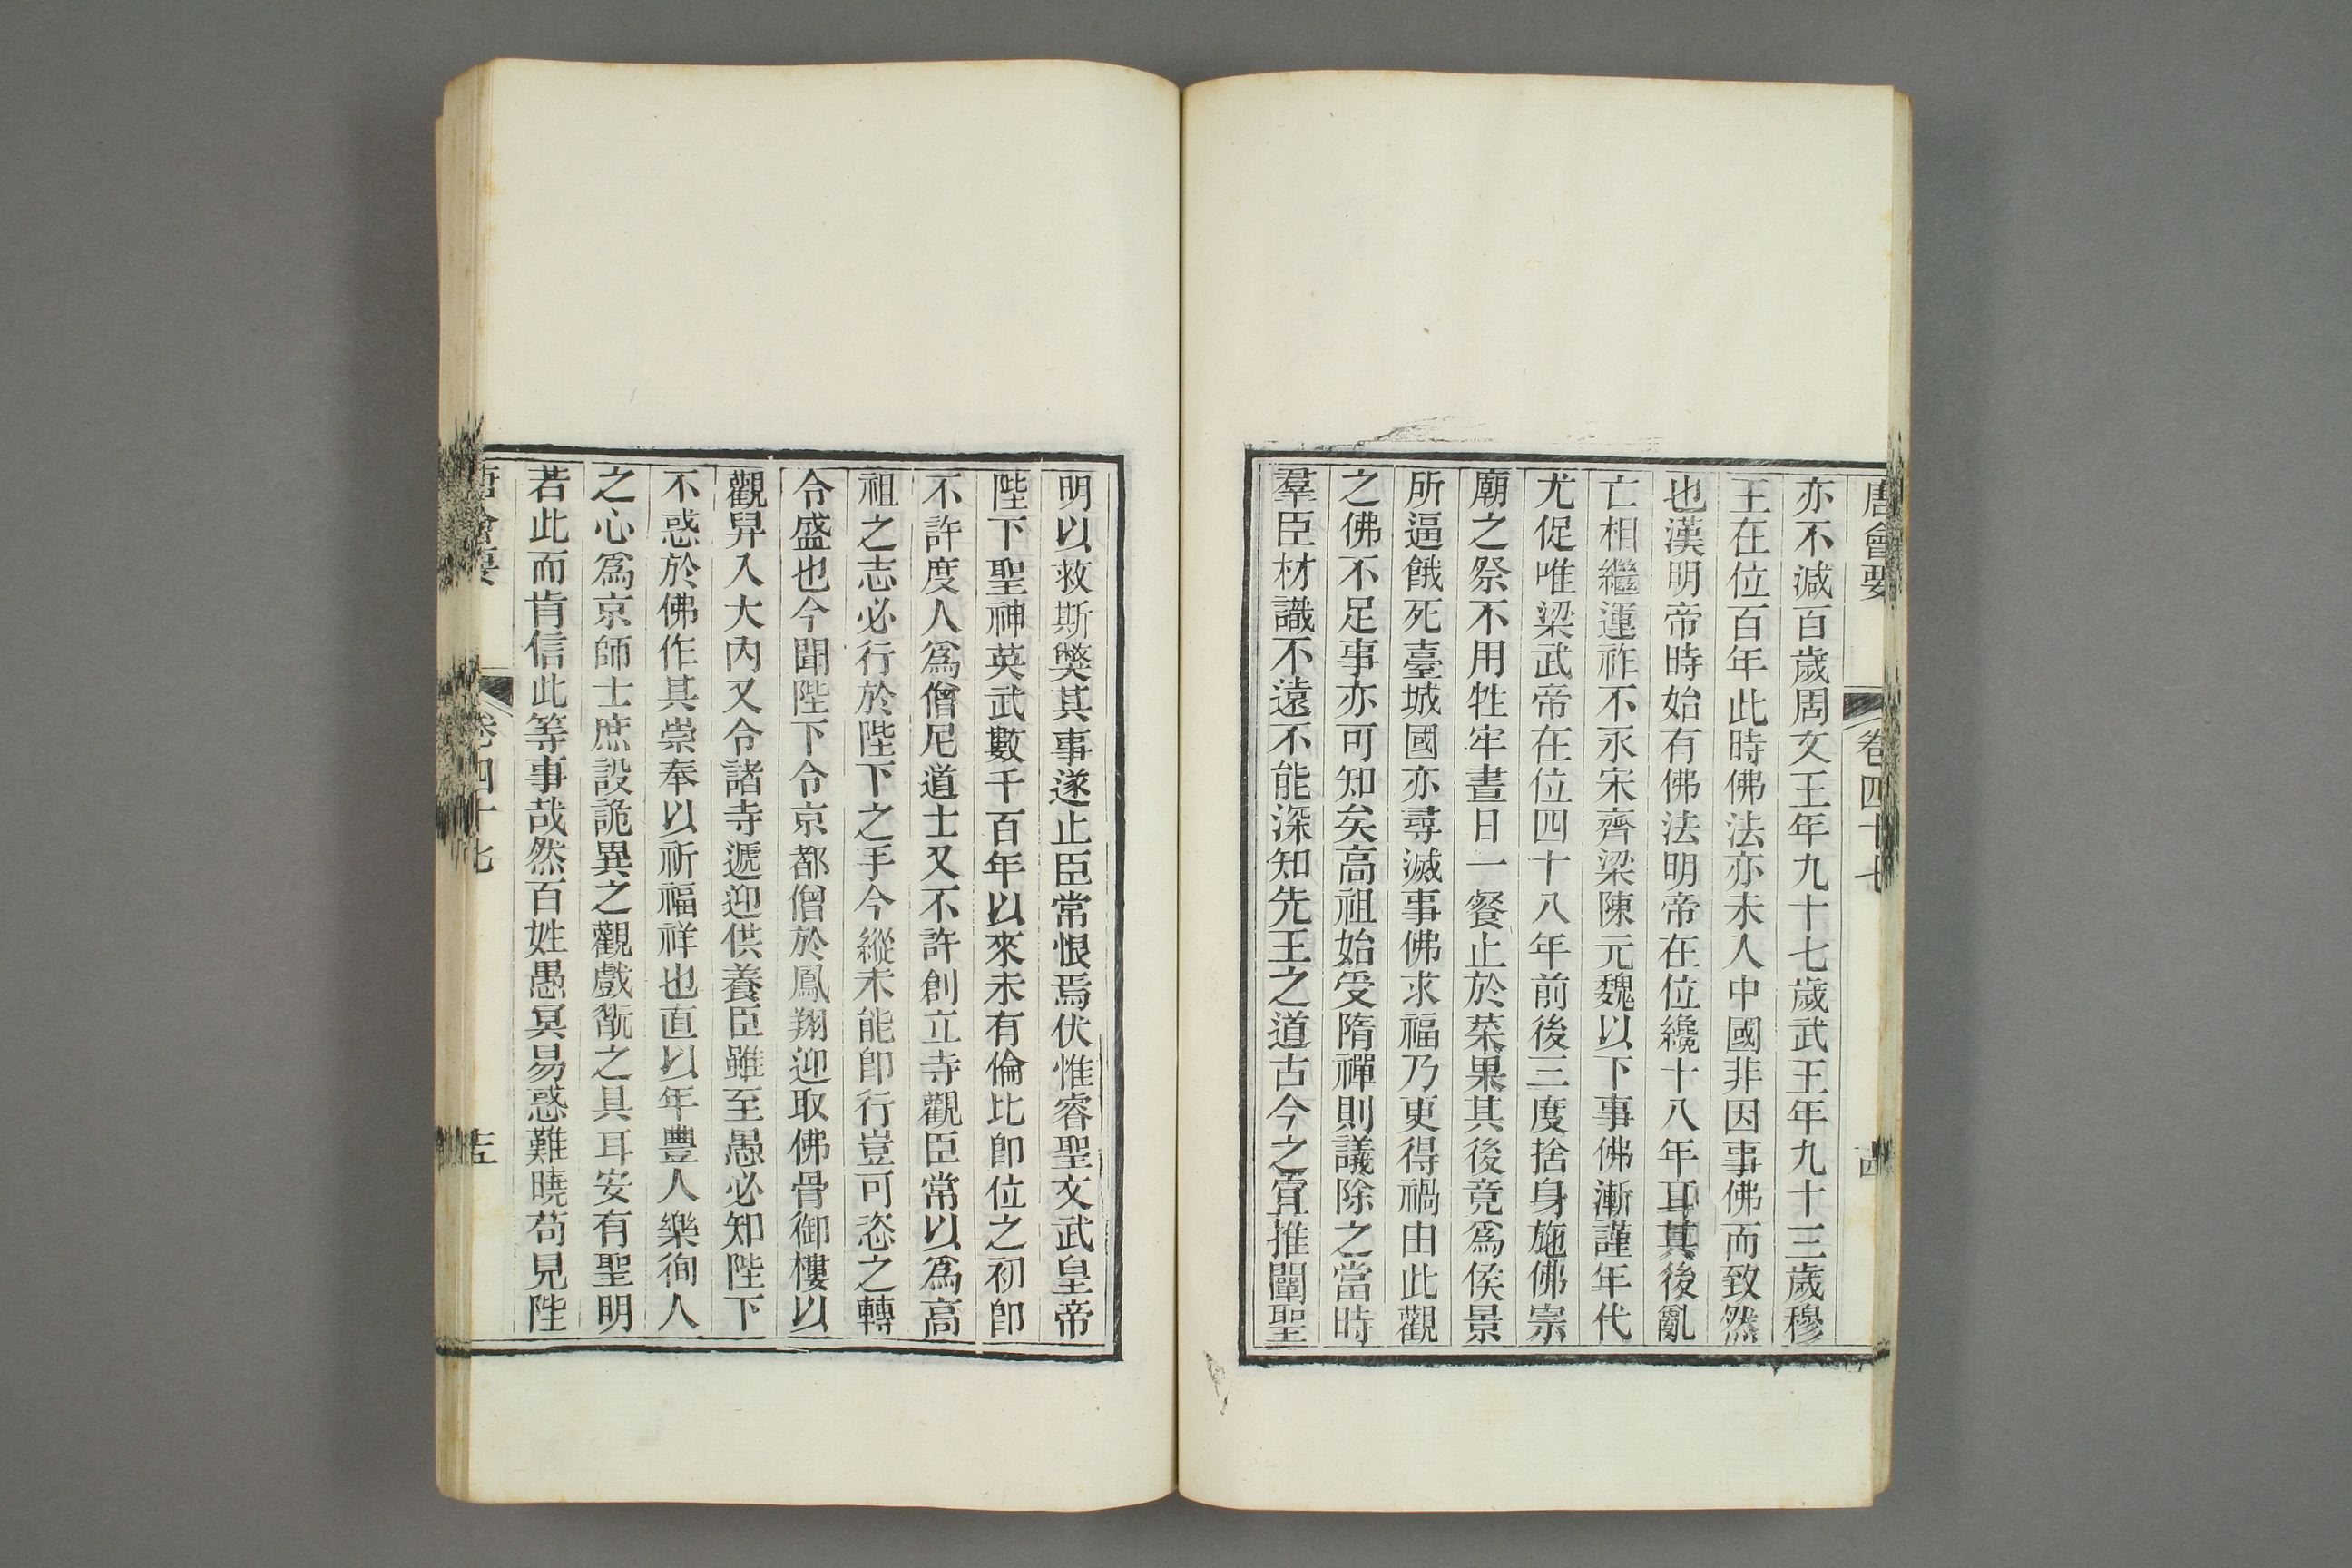 唐會要 卷四十七
亦不減百歲周文王年九十七歲武王年九十三歲穆
王在位百年此時佛法亦未入中國非因事佛而致然
也漢明帝時始有佛法明帝在位纔十八年耳其後亂
亡相繼運祚不永宋齊梁陳元魏以下事佛漸謹年代
尤促唯梁武帝在位四十八年前後三度捨身施佛宗
廟之祭不用牲牢晝日一餐止於菜果其後竟爲侯景
所逼餓死臺城國亦尋滅事佛求福乃更得禍由此觀
之佛不足事亦可知矣高祖始受隋禪則議除之當時
羣臣材識不遠不能深知先王之道古今之宜推闡聖
明以救斯獘其事遂止臣常恨焉伏惟睿聖文武皇帝
陛下聖神英武數千百年以來未有倫比卽位之初卽
不許度人爲僧尼道士又不許創立寺觀臣常以爲高
祖之志必行於陛下之手今縱未能卽行豈可恣之轉
令盛也今聞陛下令京都僧於鳳翔迎取佛骨御樓以
觀舁入大內又令諸寺遞迎供養臣雖至愚必知陛下
不惑於佛作其崇奉以祈福祥也直以年豐人樂徇人
之心爲京師士庶設詭異之觀戲翫之具耳安有聖明
若此而肯信此等事哉然百姓愚冥易惑難曉苟見陛
唐會要 卷四十七